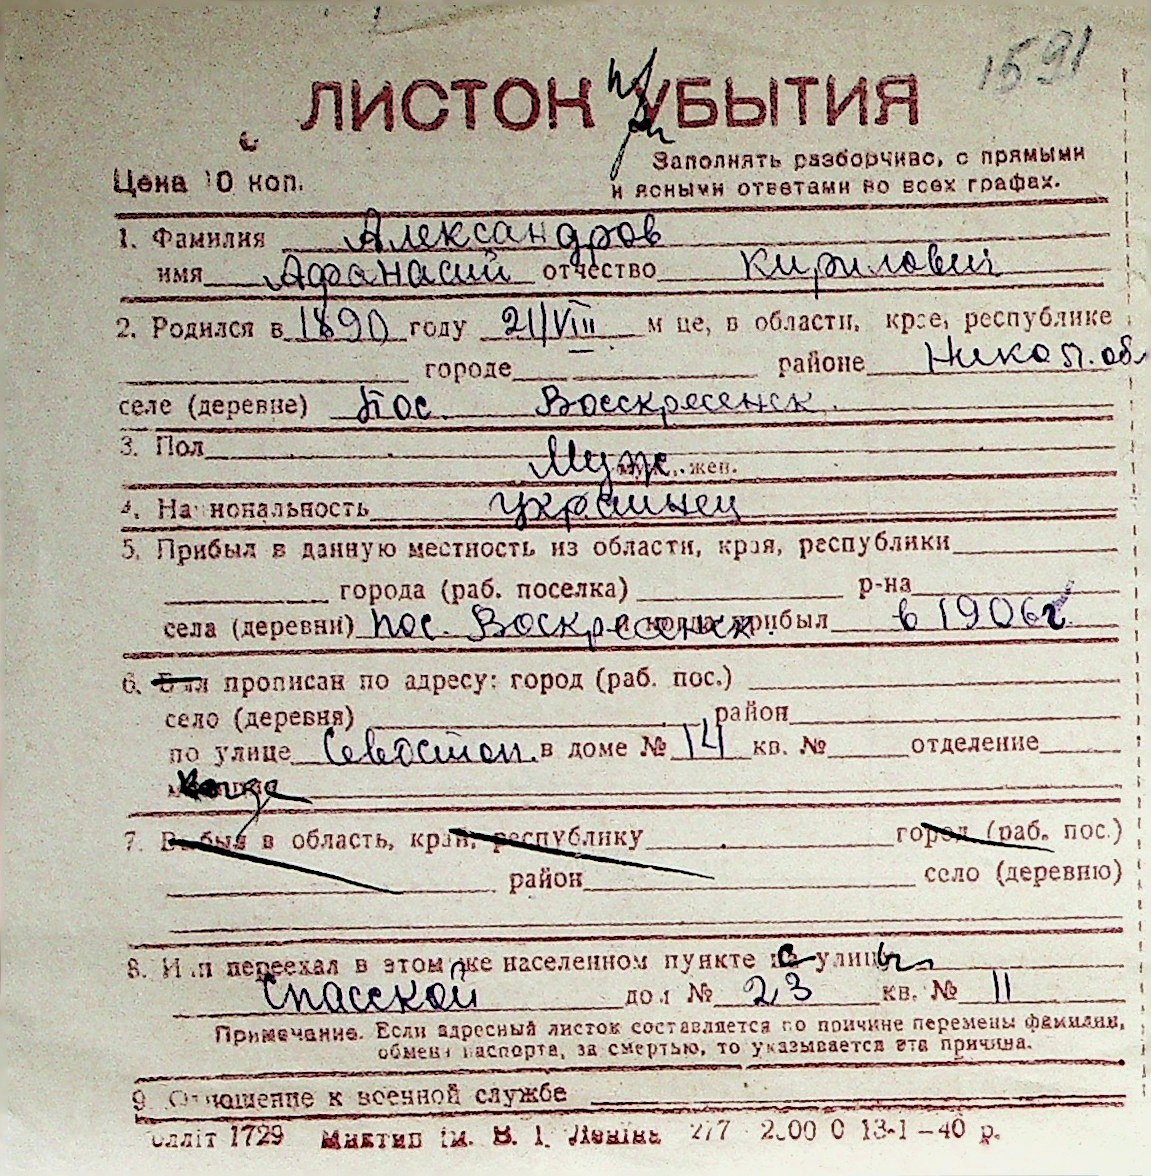 1591
ЛИСТОК УБЫТИЯ
при
Заполнять разборчиво, с прямыми
Цена 10 коп.
и ясными ответами во всех графах.
1. Фамилия Александров
имя Афанасий отчество Кирилович
2. Родился в 1890 году 21/VIII м-це, в области, крае, республике
городе районе Никол. об.
селе (деревне) Пос. Восскресенск.
3. Пол Муж. муж., жен.
4. Национальность украинец
5. Прибыл в данную местность из области, края, республики
города (раб. поселка) р-на
села (деревни) пос. Воскресенск. и когда прибыл в 1906 г
6. Был прописан по адресу: город (раб. пос.)
село (деревня) район
по улице Севостоп. в доме № 14 кв. № отделение
милиции
7. Выбыл в область, край, республику город (раб. пос.)
район село (деревню)
8. Или переехал в этом же населенном пункте с улицы
Спасской дом № 23 кв. № 11
Примечание. Если адресный листок составляется по причине перемены фамилии,
обмена паспорта, за смертью, то указывается эта причина.
9. Отношение к военной службе
Олліт 1729 Миктип ім. В. І. Леніна 2/7 13-1-40 р.